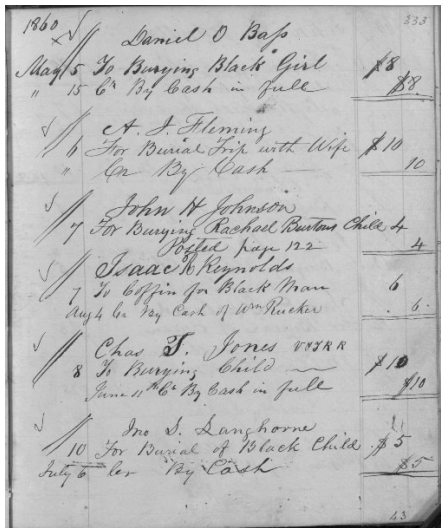 1860 333
Daniel O Bass
May 5 To Burying Black Girl $8
" 15 Cr By Cash in full $8
A. J. Fleming
6 For Burial Trip with Wife $10
" Cr By Cash 10
John H Johnson
7 For Burying Rachael Burtons Child 4
Posted page 122 4
Isaac R Reynolds
7 To Coffin for Black Man 6
Aug 4 Cr By Cash of Wm Rucker 6
Chas T. Jones V&TRR
8 To Burying Child $10
June 11th Cr By Cash in full $10
Jno S. Langhorne
10 For Burial of Black Child $5
July 6 Cr By Cash $5
43